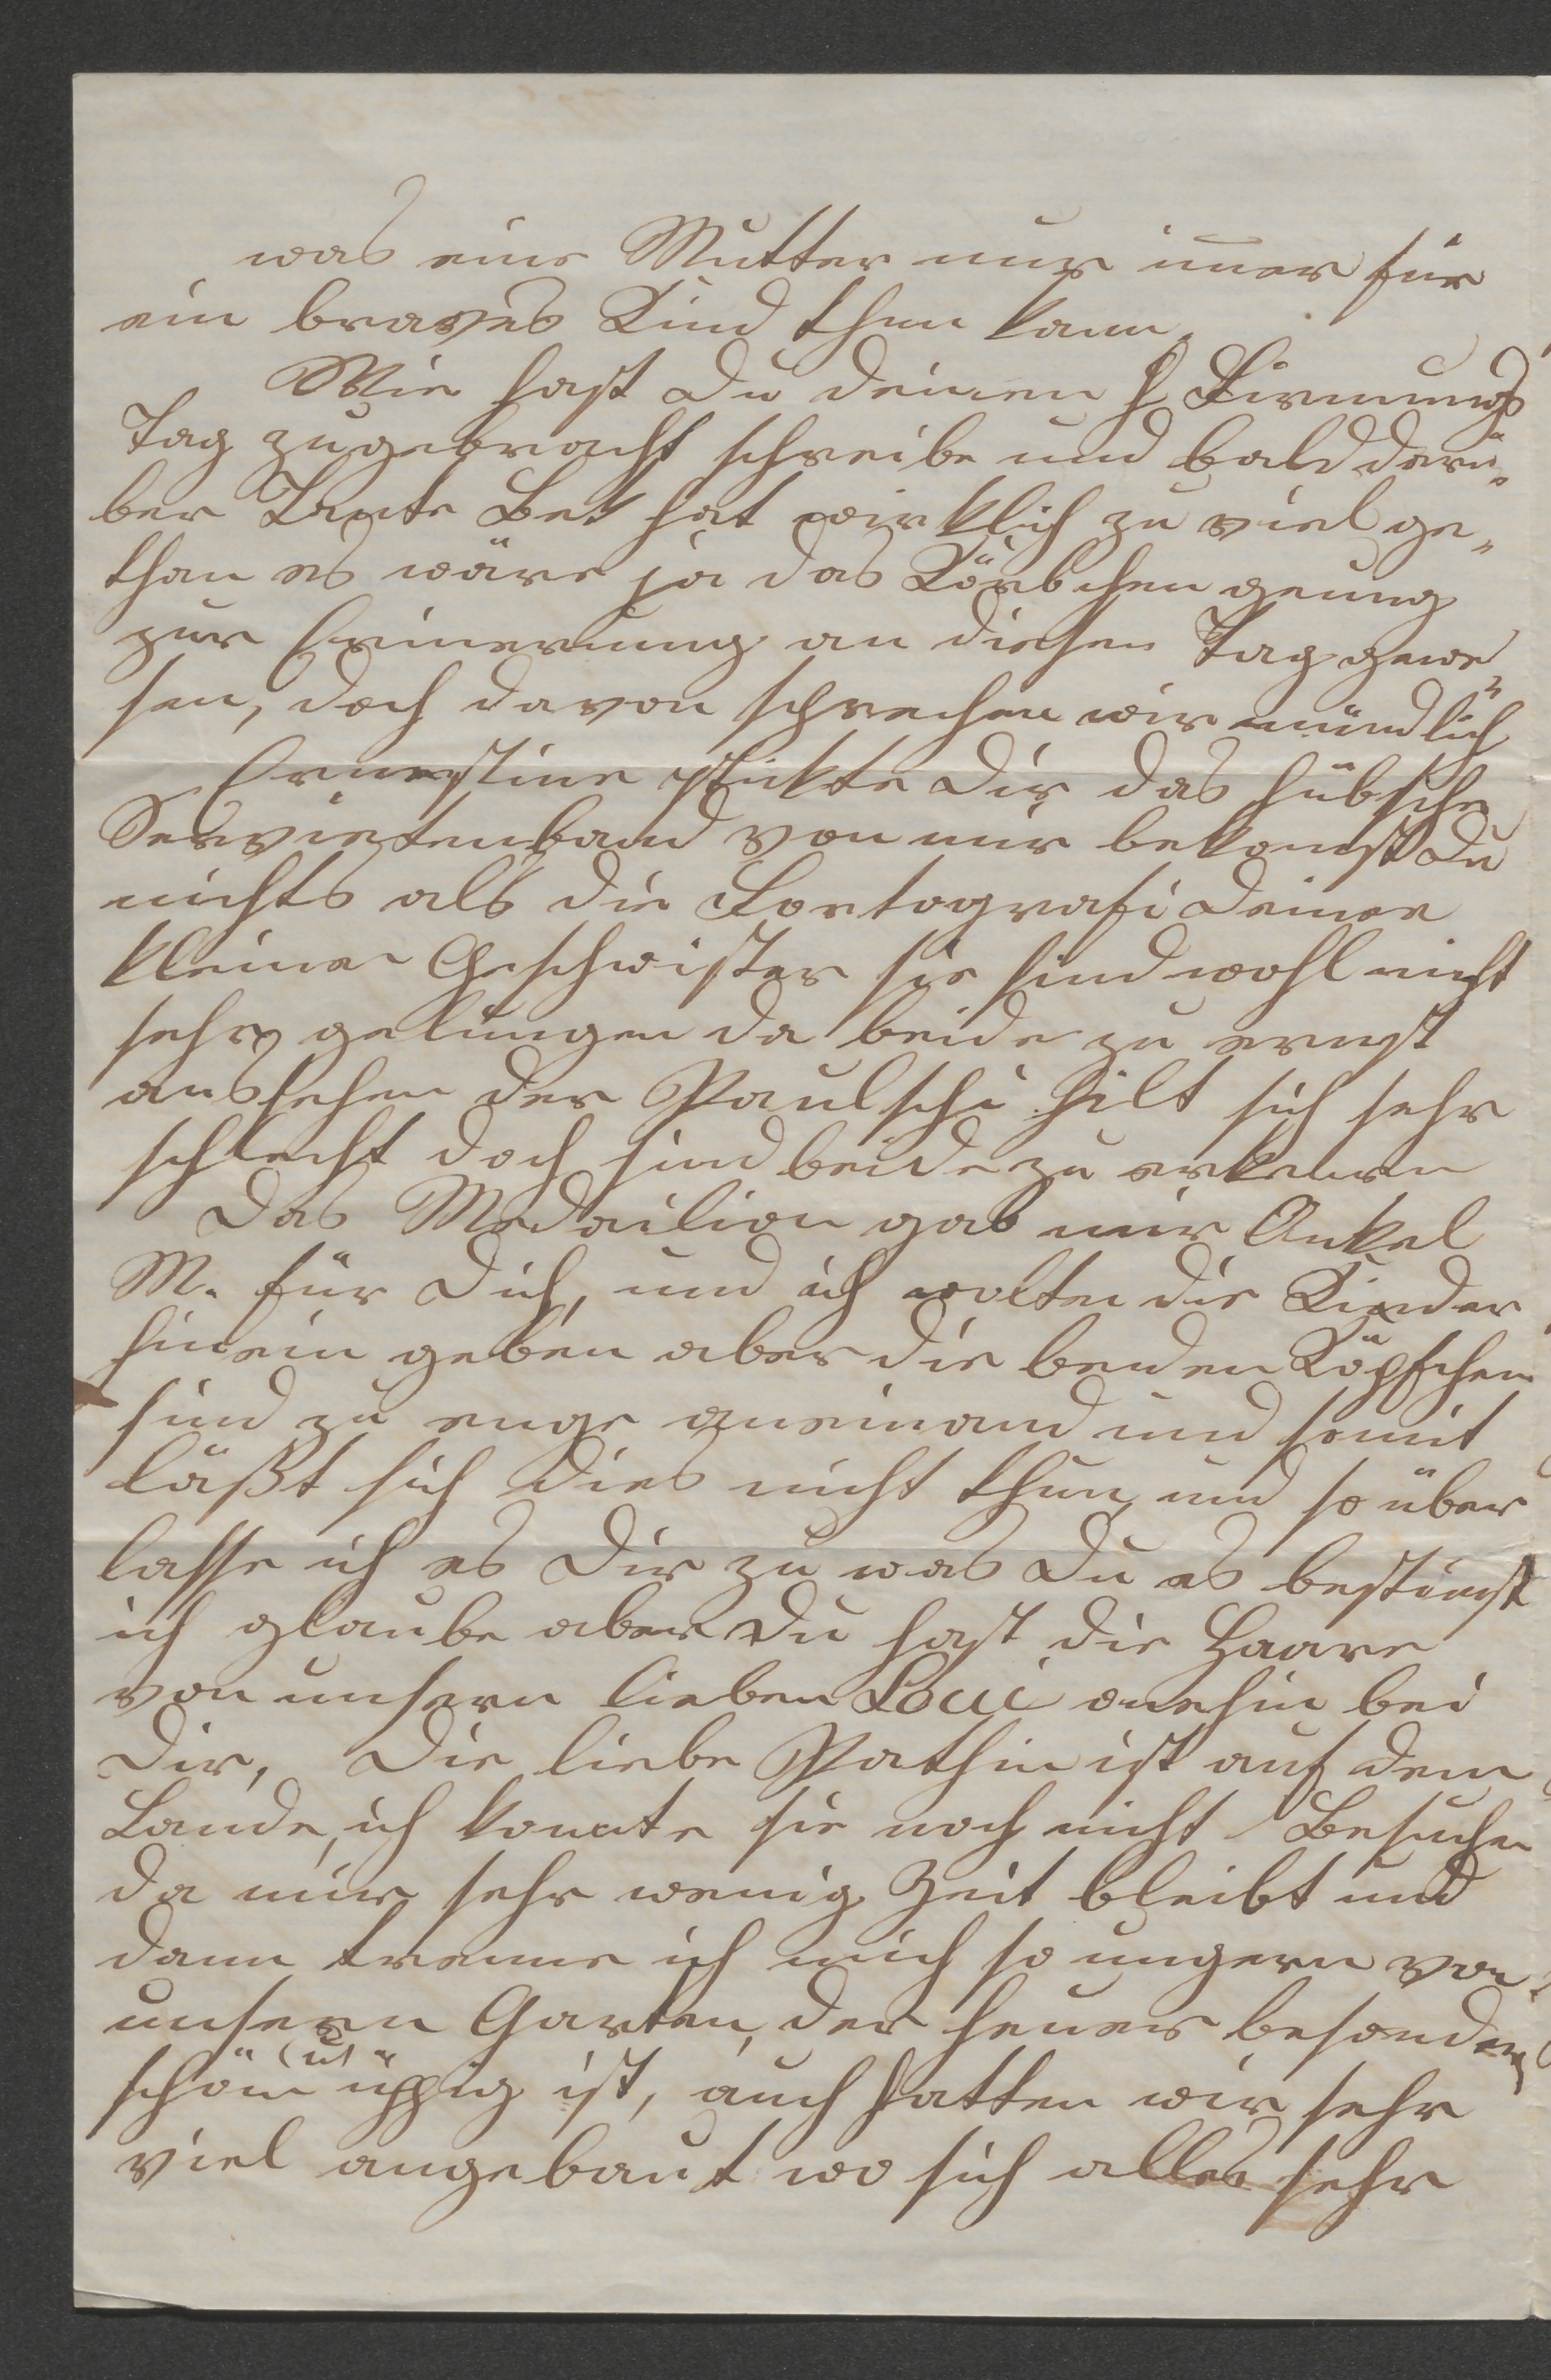 was eine Mutter nur im̅er für
ein braves Kind thun kann.
Wie hast Du deinen h Firmungs
Tag zugebracht schreibe uns bald darü-
ber Tante Bet hat wirklich zu viel ge-
than es wäre ja das Körbchen genug
zur Erinnerung an diesen Tag gewe-
sen, doch davon sprechen wir mündlich
Ernestine schikte Dir das hübsche
Servietenband von mir bekomst Du
nichts als die Fortografi deiner
kleinen Geschwister sie sind wohl nicht
sehr gelungen da beide zu ernst
aussehen der Paulschi hilt sich sehr
schlecht doch sind beide zu erkennen
Das Medailion gab mir Onkel
M. für Dich, und ich wolten die Kinder
hinein geben aber die beiden Köpfchen
sind zu enge aneinand und somit
läßt sich dies nicht thun, und so über
lasse ich es Dir zu was Du es bestimst
ich glaube aber Du hast die Haare
von unsern lieben Loui onehin bei
Dir, Die liebe Pathin ist auf dem
Lande, ich konnte sie noch nicht Besuchen
da mir sehr wenig Zeit bleibt und
dann trenne ich mich so ungern von
unsern Garten, der heuer besonders
schön (u) üppig ist, auch hatten wir sehr
viel angebaut wo sich alles sehr